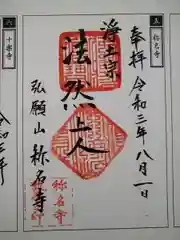 五 称名寺
奉拝 令和三年八月一日
浄土宗
法然上人
弘願山 称名寺
称名寺
六 十楽寺
令和三年